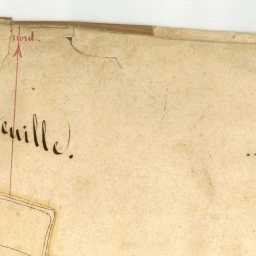 nord.
euille).